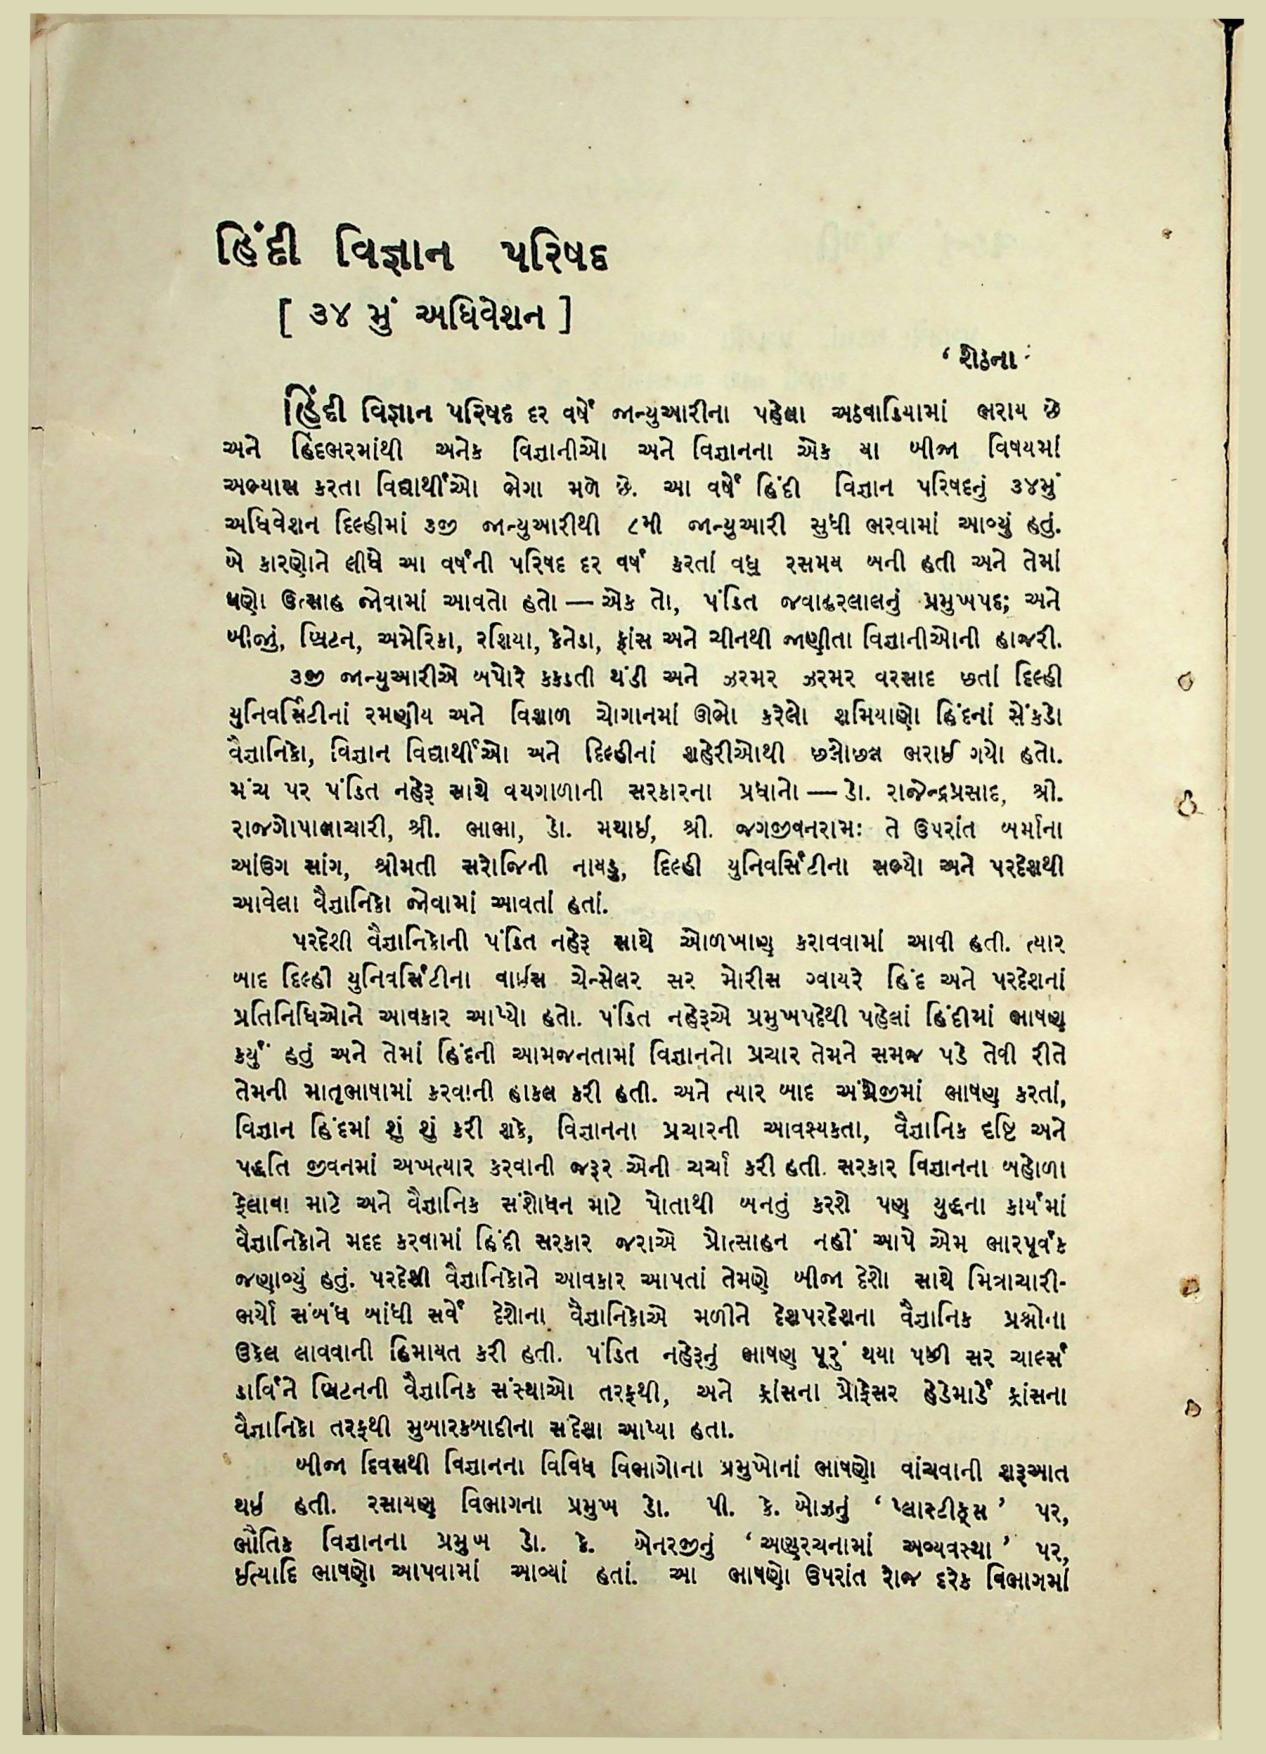 હિંદી વિજ્ઞાન પરિષદ
[ ૩૪ મું અધિવેશન ]
‘ શેઠના ’
હિંદી વિજ્ઞાન પરિષદ દર વર્ષે જાન્યુઆરીના પહેલા અઠવાડિયામાં ભરાય છે
અને હિંદભરમાંથી અનેક વિજ્ઞાનીઓ અને વિજ્ઞાનના એક યા બીજા વિષયમાં
અભ્યાસ કરતા વિદ્યાર્થીઓ ભેગા મળે છે. આ વર્ષે હિંદી વિજ્ઞાન પરિષદનું ૩૪મું
અધિવેશન દિલ્હીમાં ૩જી જાન્યુઆરીથી ૮મી જાન્યુઆરી સુધી ભરવામાં આવ્યું હતું.
બે કારણોને લીધે આ વર્ષની પરિષદ દર વર્ષ કરતાં વધુ રસમય બની હતી અને તેમાં
ઘણો ઉત્સાહ જોવામાં આવતો હતો — એક તો, પંડિત જવાહરલાલનું પ્રમુખપદ; અને
બીજું, બ્રિટન, અમેરિકા, રશિયા, કેનેડા, ફ્રાંસ અને ચીનથી જાણીતા વિજ્ઞાનીઓની હાજરી.
૩જી જાન્યુઆરીએ બપોરે કકડતી થંડી અને ઝરમર ઝરમર વરસાદ છતાં દિલ્હી
યુનિવર્સિટીનાં રમણીય અને વિશાળ ચોગાનમાં ઊભો કરેલો શમિયાણો હિંદનાં સેંકડો
વૈજ્ઞાનિકો, વિજ્ઞાન વિદ્યાર્થીઓ અને દિલ્હીનાં શહેરીઓથી છત્રોછત્ર ભરાઈ ગયો હતો.
મંચ પર પંડિત નહેરૂ સાથે વચગાળાની સરકારના પ્રધાનો — ડો. રાજેન્દ્રપ્રસાદ, શ્રી.
રાજગોપાલાચારી, શ્રી. ભાભા, ડો. મથાઈ, શ્રી. જગજીવનરામઃ તે ઉપરાંત બર્માના
આંઉગ સાંગ, શ્રીમતી સરોજિની નાયડુ, દિલ્હી યુનિવર્સિટીના સભ્યો અને પરદેશથી
આવેલા વૈજ્ઞાનિકો જોવામાં આવતાં હતાં.
પરદેશી વૈજ્ઞાનિકોની પંડિત નહેરૂ સાથે ઓળખાણ કરાવવામાં આવી હતી. ત્યાર
બાદ દિલ્હી યુનિવર્સિટીના વાઈસ ચેન્સેલર સર મોરીસ ગ્વાયરે હિંદ અને પરદેશનાં
પ્રતિનિધિઓને આવકાર આપ્યો હતો. પંડિત નહેરૂએ પ્રમુખપદેથી પહેલાં હિંદીમાં ભાષણ
કર્યું હતું અને તેમાં હિંદની આમજનતામાં વિજ્ઞાનનો પ્રચાર તેમને સમજ પડે તેવી રીતે
તેમની માતૃભાષામાં કરવાની હાકલ કરી હતી. અને ત્યાર બાદ અંગ્રેજીમાં ભાષણ કરતાં,
વિજ્ઞાન હિંદમાં શું શું કરી શકે, વિજ્ઞાનના પ્રચારની આવશ્યકતા, વૈજ્ઞાનિક દૃષ્ટિ અને
પદ્ધતિ જીવનમાં અખત્યાર કરવાની જરૂર એની ચર્ચા કરી હતી. સરકાર વિજ્ઞાનના બહોળા
ફેલાવા માટે અને વૈજ્ઞાનિક સંશોધન માટે પોતાથી બનતું કરશે પણ યુદ્ધના કાર્યમાં
વૈજ્ઞાનિકોને મદદ કરવામાં હિંદી સરકાર જરાએ પ્રોત્સાહન નહીં આપે એમ ભારપૂર્વક
જણાવ્યું હતું. પરદેશી વૈજ્ઞાનિકોને આવકાર આપતાં તેમણે બીજા દેશો સાથે મિત્રાચારી-
ભર્યો સંબંધ બાંધી સર્વે દેશોના વૈજ્ઞાનિકોએ મળીને દેશપરદેશના વૈજ્ઞાનિક પ્રશ્નોના
ઉકેલ લાવવાની હિમાયત કરી હતી. પંડિત નહેરૂનું ભાષણ પૂરું થયા પછી સર ચાર્લ્સ
ડાર્વિને બ્રિટનની વૈજ્ઞાનિક સંસ્થાઓ તરફથી, અને ફ્રાંસના પ્રોફેસર હેડેમાર્ડે ફ્રાંસના
વૈજ્ઞાનિકો તરફથી મુબારકબાદીના સંદેશા આપ્યા હતા.
બીજા દિવસથી વિજ્ઞાનના વિવિધ વિભાગોના પ્રમુખોનાં ભાષણો વાંચવાની શરૂઆત
થઈ હતી. રસાયણ વિભાગના પ્રમુખ ડો. પી. કે. બોઝનું ‘ પ્લાસ્ટીક્સ ’ પર,
ભૌતિક વિજ્ઞાનના પ્રમુખ ડો. કે. બેનરજીનું ‘ અણુરચનામાં અવ્યવસ્થા ’ પર,
ઈત્યાદિ ભાષણો આપવામાં આવ્યાં હતાં. આ ભાષણો ઉપરાંત રોજ દરેક વિભાગમાં